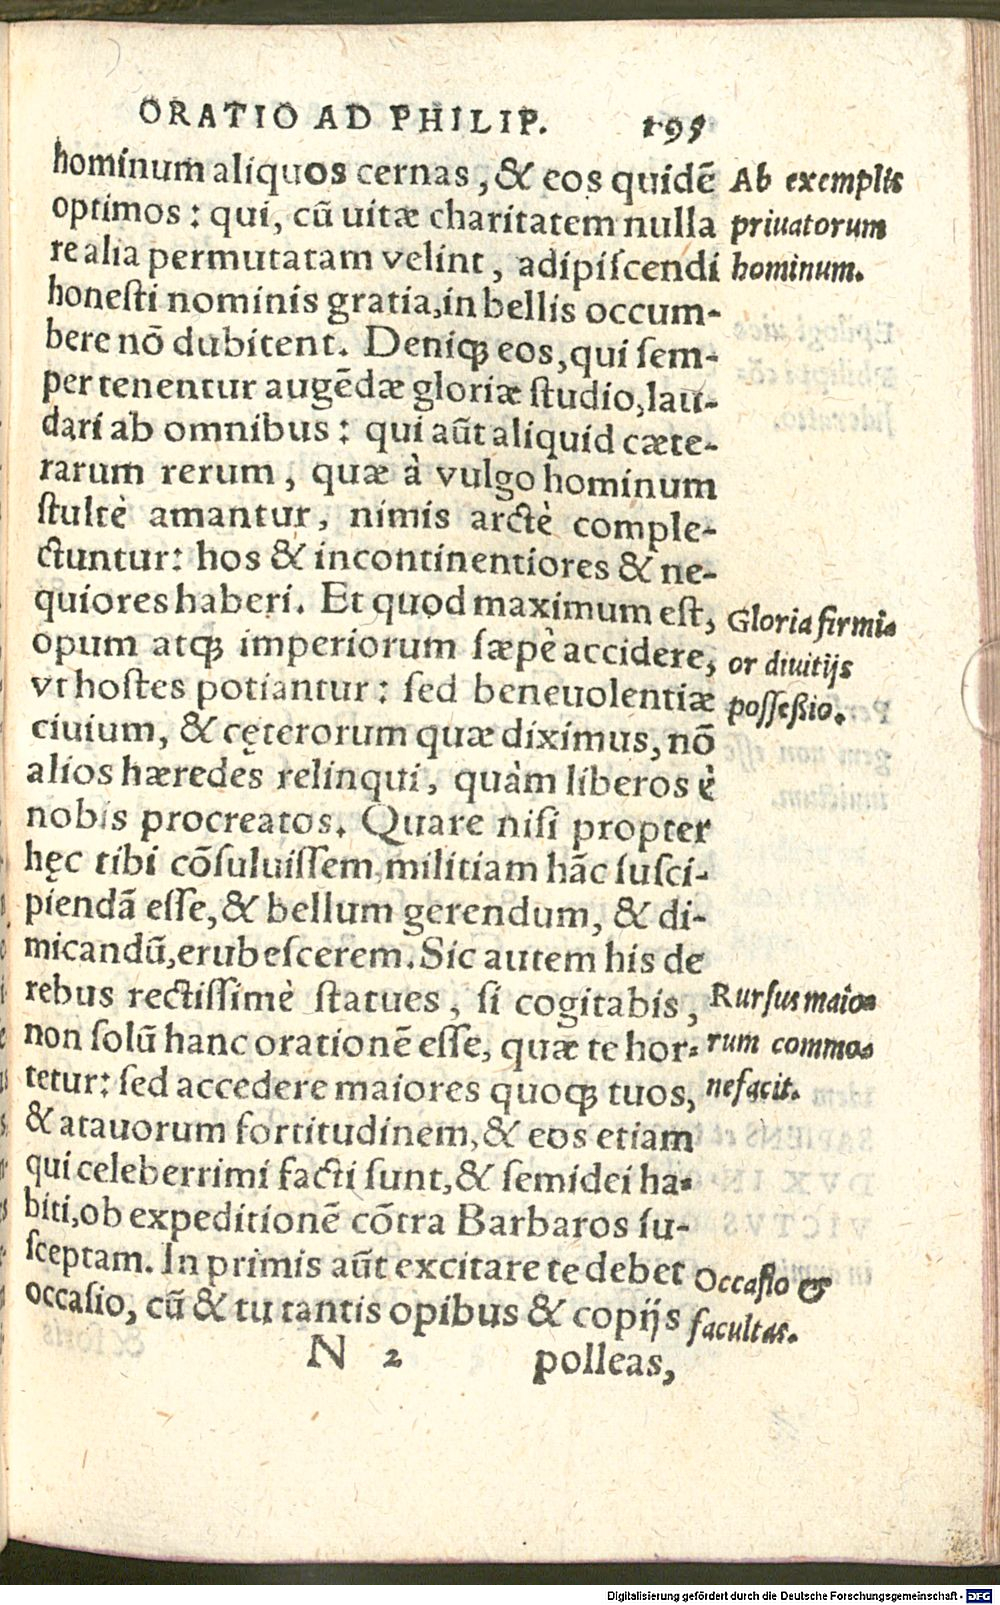 ORATIO AD PHILIP. 195
hominum aliquos cernas, & eos quidē
optimos: qui, cū uitæ charitatem nulla
re alia permutatam velint, adipiſcendi
honeſti nominis gratia, in bellis occum-
bere nō dubitent. Deniqꝫ eos, qui ſem-
per tenentur augēdæ gloriæ ſtudio, lau-
dari ab omnibus: qui aūt aliquid cæte-
rarum rerum, quæ à vulgo hominum
ſtultè amantur, nimis arctè comple-
ctuntur: hos & incontinentiores & ne-
quiores haberi. Et quod maximum eſt,
opum atqꝫ imperiorum ſæpè accidere,
vt hoſtes potiantur: ſed beneuolentiæ
ciuium, & cęterorum quæ diximus, nō
alios hæredes relinqui, quàm liberos è
nobis procreatos. Quare niſi propter
hęc tibi cōſuluiſſem, militiam hāc ſuſci-
piendā eſſe, & bellum gerendum, & di-
micandū, erubeſcerem. Sic autem his de
rebus rectiſſimè ſtatues, ſi cogitabis,
non ſolū hanc orationē eſſe, quæ te hor-
tetur: ſed accedere maiores quoqꝫ tuos,
& atauorum fortitudinem, & eos etiam
qui celeberrimi facti ſunt, & ſemidei ha-
biti, ob expeditionē cōtra Barbaros ſu-
ſceptam. In primis aūt excitare te debet
occaſio, cū & tu tantis opibus & copijs
N 2 polleas,
Ab exemplis
priuatorum
hominum.
Gloria firmi-
or diuitijs
poſſeßio.
Rurſus maio-
rum commo-
nefacit.
Occaſio &
facultas.
Digitalisierung gefördert durch die Deutsche Forschungsgemeinschaft - DFG